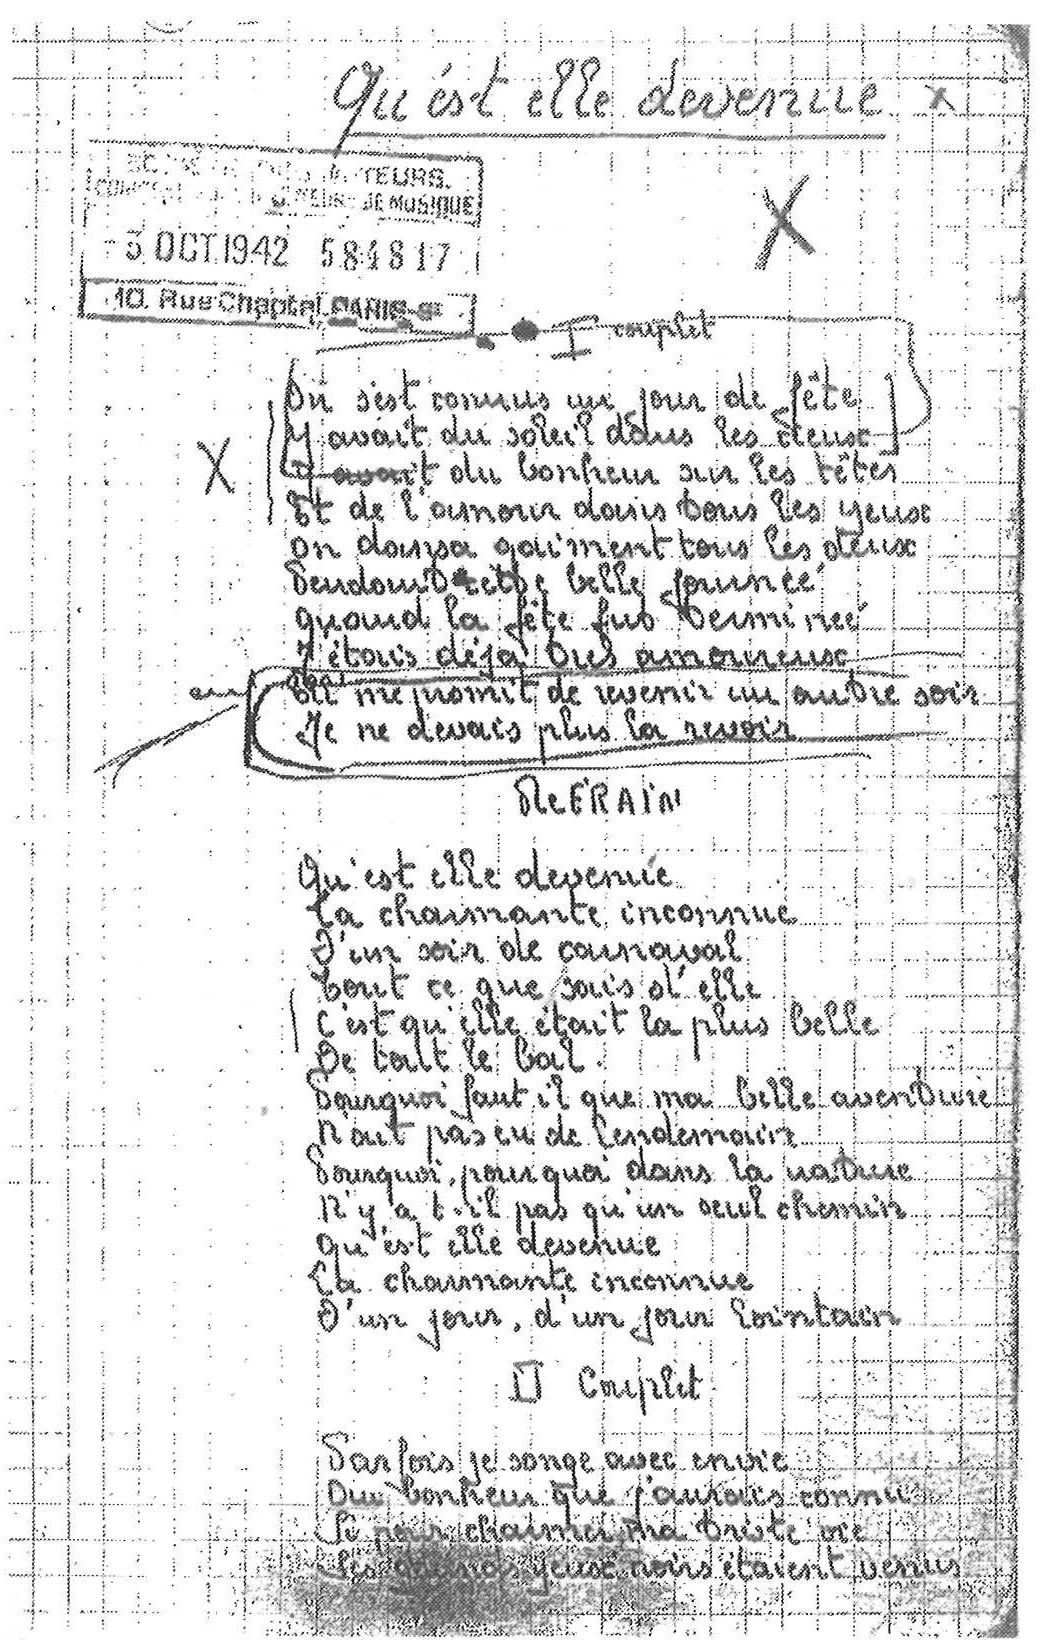 Qu'ést elle devenue x
SOCIÉTÉ DES AUTEURS.
COMPOSITEURS DE MUSIQUE
- 5 OCT 1942 584817
10. Rue Chaptal, PARIS-9e
X
I couplet
On s'est connus un jour de fête
Y avait du soleil dans les cieux
X
Y avait du bonheur sur les têtes
Et de l'amour dans tous les yeux
On dansa gaiment tous les deux
Pendant cette belle journée
quand la fête fut terminée
J'étais déjà très amoureux
me promit de revenir un autre soir
Je ne devais plus la revoir
ReFRAIN
Qu'est elle devenue
La charmante inconnue
D'un soir de carnaval
Tout ce que sais d'elle
C'est qu'elle était la plus belle
De tout le bal.
Pourquoi faut il que ma belle aventure
N'ait pas eu de lendemain
Pourquoi, pourquoi dans la nature
N'y a t-il pas qu'un seul chemin
Qu'est elle devenue
La charmante inconnue
D'un jour, d'un jour lointain
II Couplet
Parfois je songe avec envie
Du bonheur que j'aurais connu
Si pour charmer ma triste vie
Ses yeux noirs étaient venus